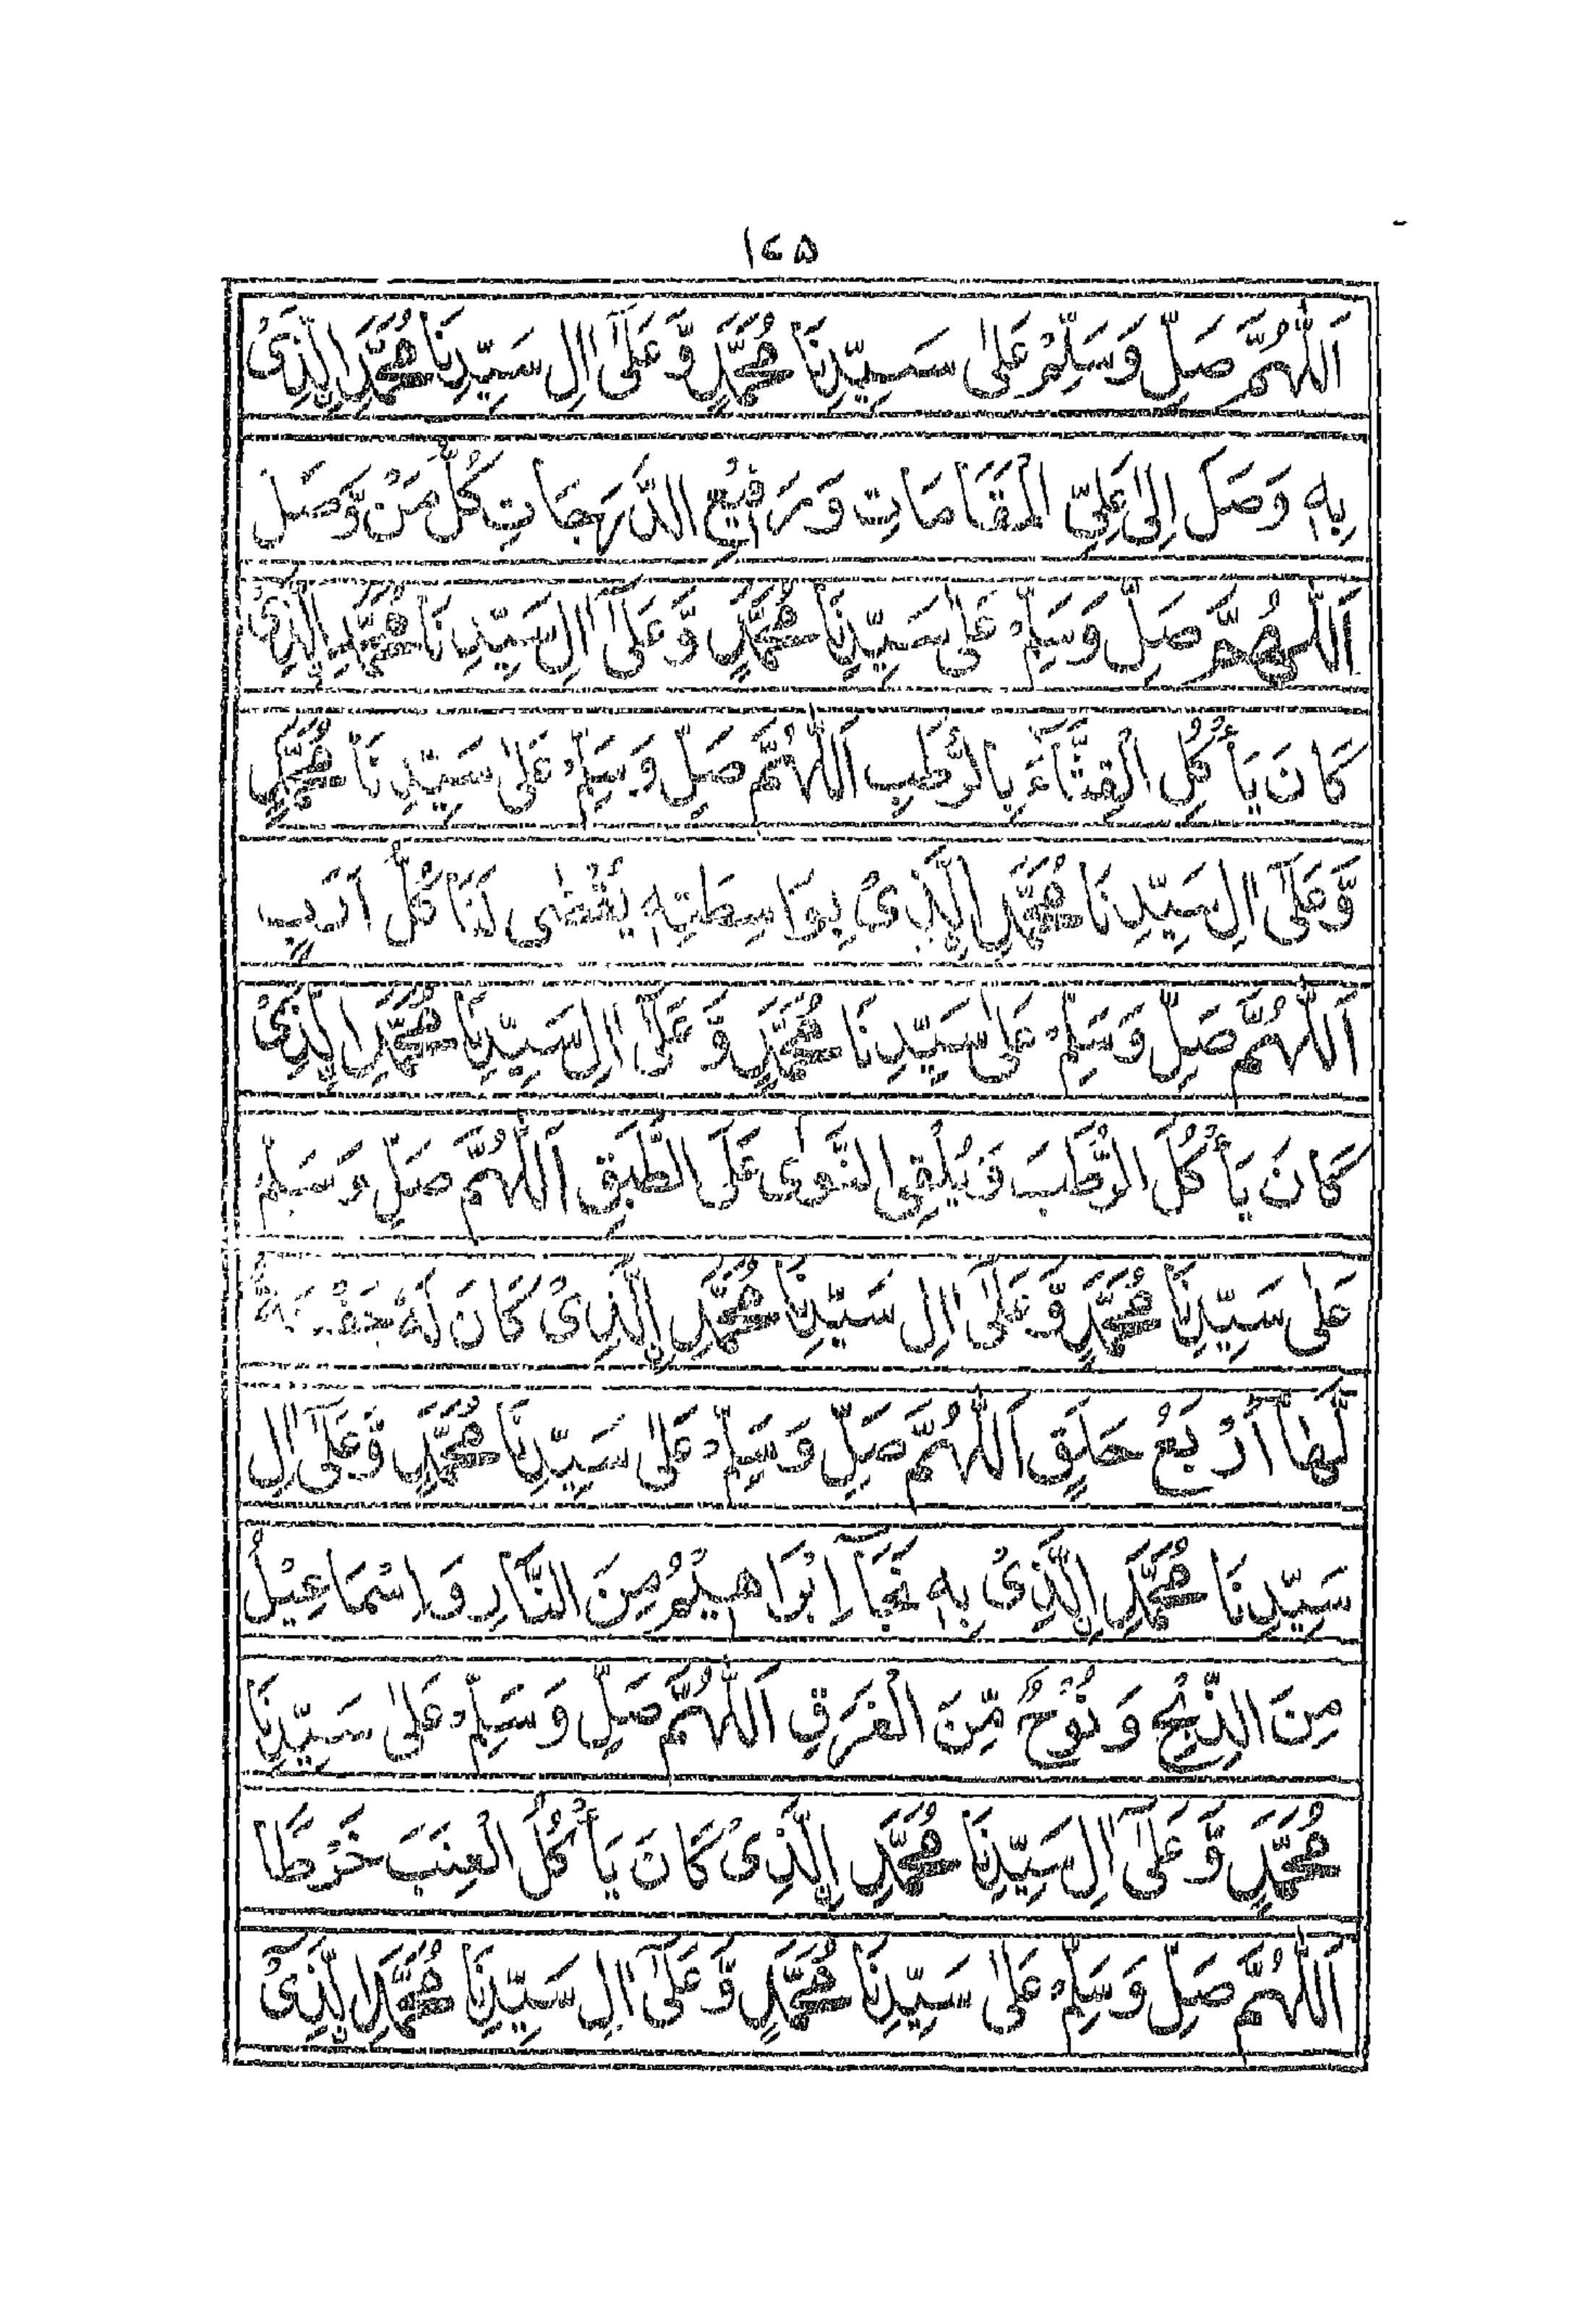 ١٤٥
اَللّٰهُمَّ صَلِّ وَسَلِّمْ عَلٰى سَيِّدِنَا مُحَمَّدٍ وَّعَلٰٓى اٰلِ سَيِّدِنَا مُحَمَّدِ اِلَّذِىْ
بِهٖ وَصَلَ اِلٰى عَلِيِّ الْمَقَامَاتِ وَرَفِيْعِ الدَّرَجَاتِ كُلُّ مَنْ وَّصَلَ
اَللّٰهُمَّ صَلِّ وَسَلِّمْ عَلٰى سَيِّدِنَا مُحَمَّدٍ وَّعَلٰٓى اٰلِ سَيِّدِنَا مُحَمَّدِ اِلَّذِىْ
كَانَ يَأْكُلُ الْقِثَّآءَ بِالرُّطَبِ اَللّٰهُمَّ صَلِّ وَسَلِّمْ عَلٰى سَيِّدِنَا مُحَمَّدٍ
وَّعَلٰٓى اٰلِ سَيِّدِنَا مُحَمَّدِ اِلَّذِىْ بِوَاسِطَتِهٖ يُقْضٰى لَنَا كُلُّ اَرَبٍ
اَللّٰهُمَّ صَلِّ وَسَلِّمْ عَلٰى سَيِّدِنَا مُحَمَّدٍ وَّعَلٰٓى اٰلِ سَيِّدِنَا مُحَمَّدِ اِلَّذِىْ
كَانَ يَأْكُلُ الرُّطَبَ وَيُلْقِى النَّوٰى عَلَى الطَّبَقِ اَللّٰهُمَّ صَلِّ وَسَلِّمْ
عَلٰى سَيِّدِنَا مُحَمَّدٍ وَّعَلٰٓى اٰلِ سَيِّدِنَا مُحَمَّدِ اِلَّذِىْ كَانَ لَهٗ جَفْنَةٌ
لَّهَآ اَرْبَعُ حَلَقٍ اَللّٰهُمَّ صَلِّ وَسَلِّمْ عَلٰى سَيِّدِنَا مُحَمَّدٍ وَّعَلٰٓى اٰلِ
سَيِّدِنَا مُحَمَّدِ اِلَّذِىْ بِهٖ نَجَآ اِبْرَاهِيْمُ مِنَ النَّارِ وَاِسْمَاعِيْلُ
مِنَ الذِّبْحِ وَنُوْحٌ مِّنَ الْغَرَقِ اَللّٰهُمَّ صَلِّ وَسَلِّمْ عَلٰى سَيِّدِنَا
مُحَمَّدٍ وَّعَلٰٓى اٰلِ سَيِّدِنَا مُحَمَّدِ اِلَّذِىْ كَانَ يَأْكُلُ الْعِنَبَ خَرْطًا
اَللّٰهُمَّ صَلِّ وَسَلِّمْ عَلٰى سَيِّدِنَا مُحَمَّدٍ وَّعَلٰٓى اٰلِ سَيِّدِنَا مُحَمَّدِ اِلَّذِىْ